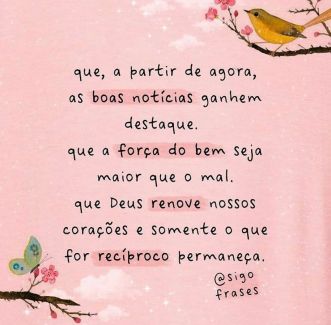 que, a partir de agora,
as boas notícias ganhem
destaque.
que a força do bem seja
maior que o mal.
que Deus renove nossos
corações e somente o que
for recíproco permaneça.
@sigo
frases